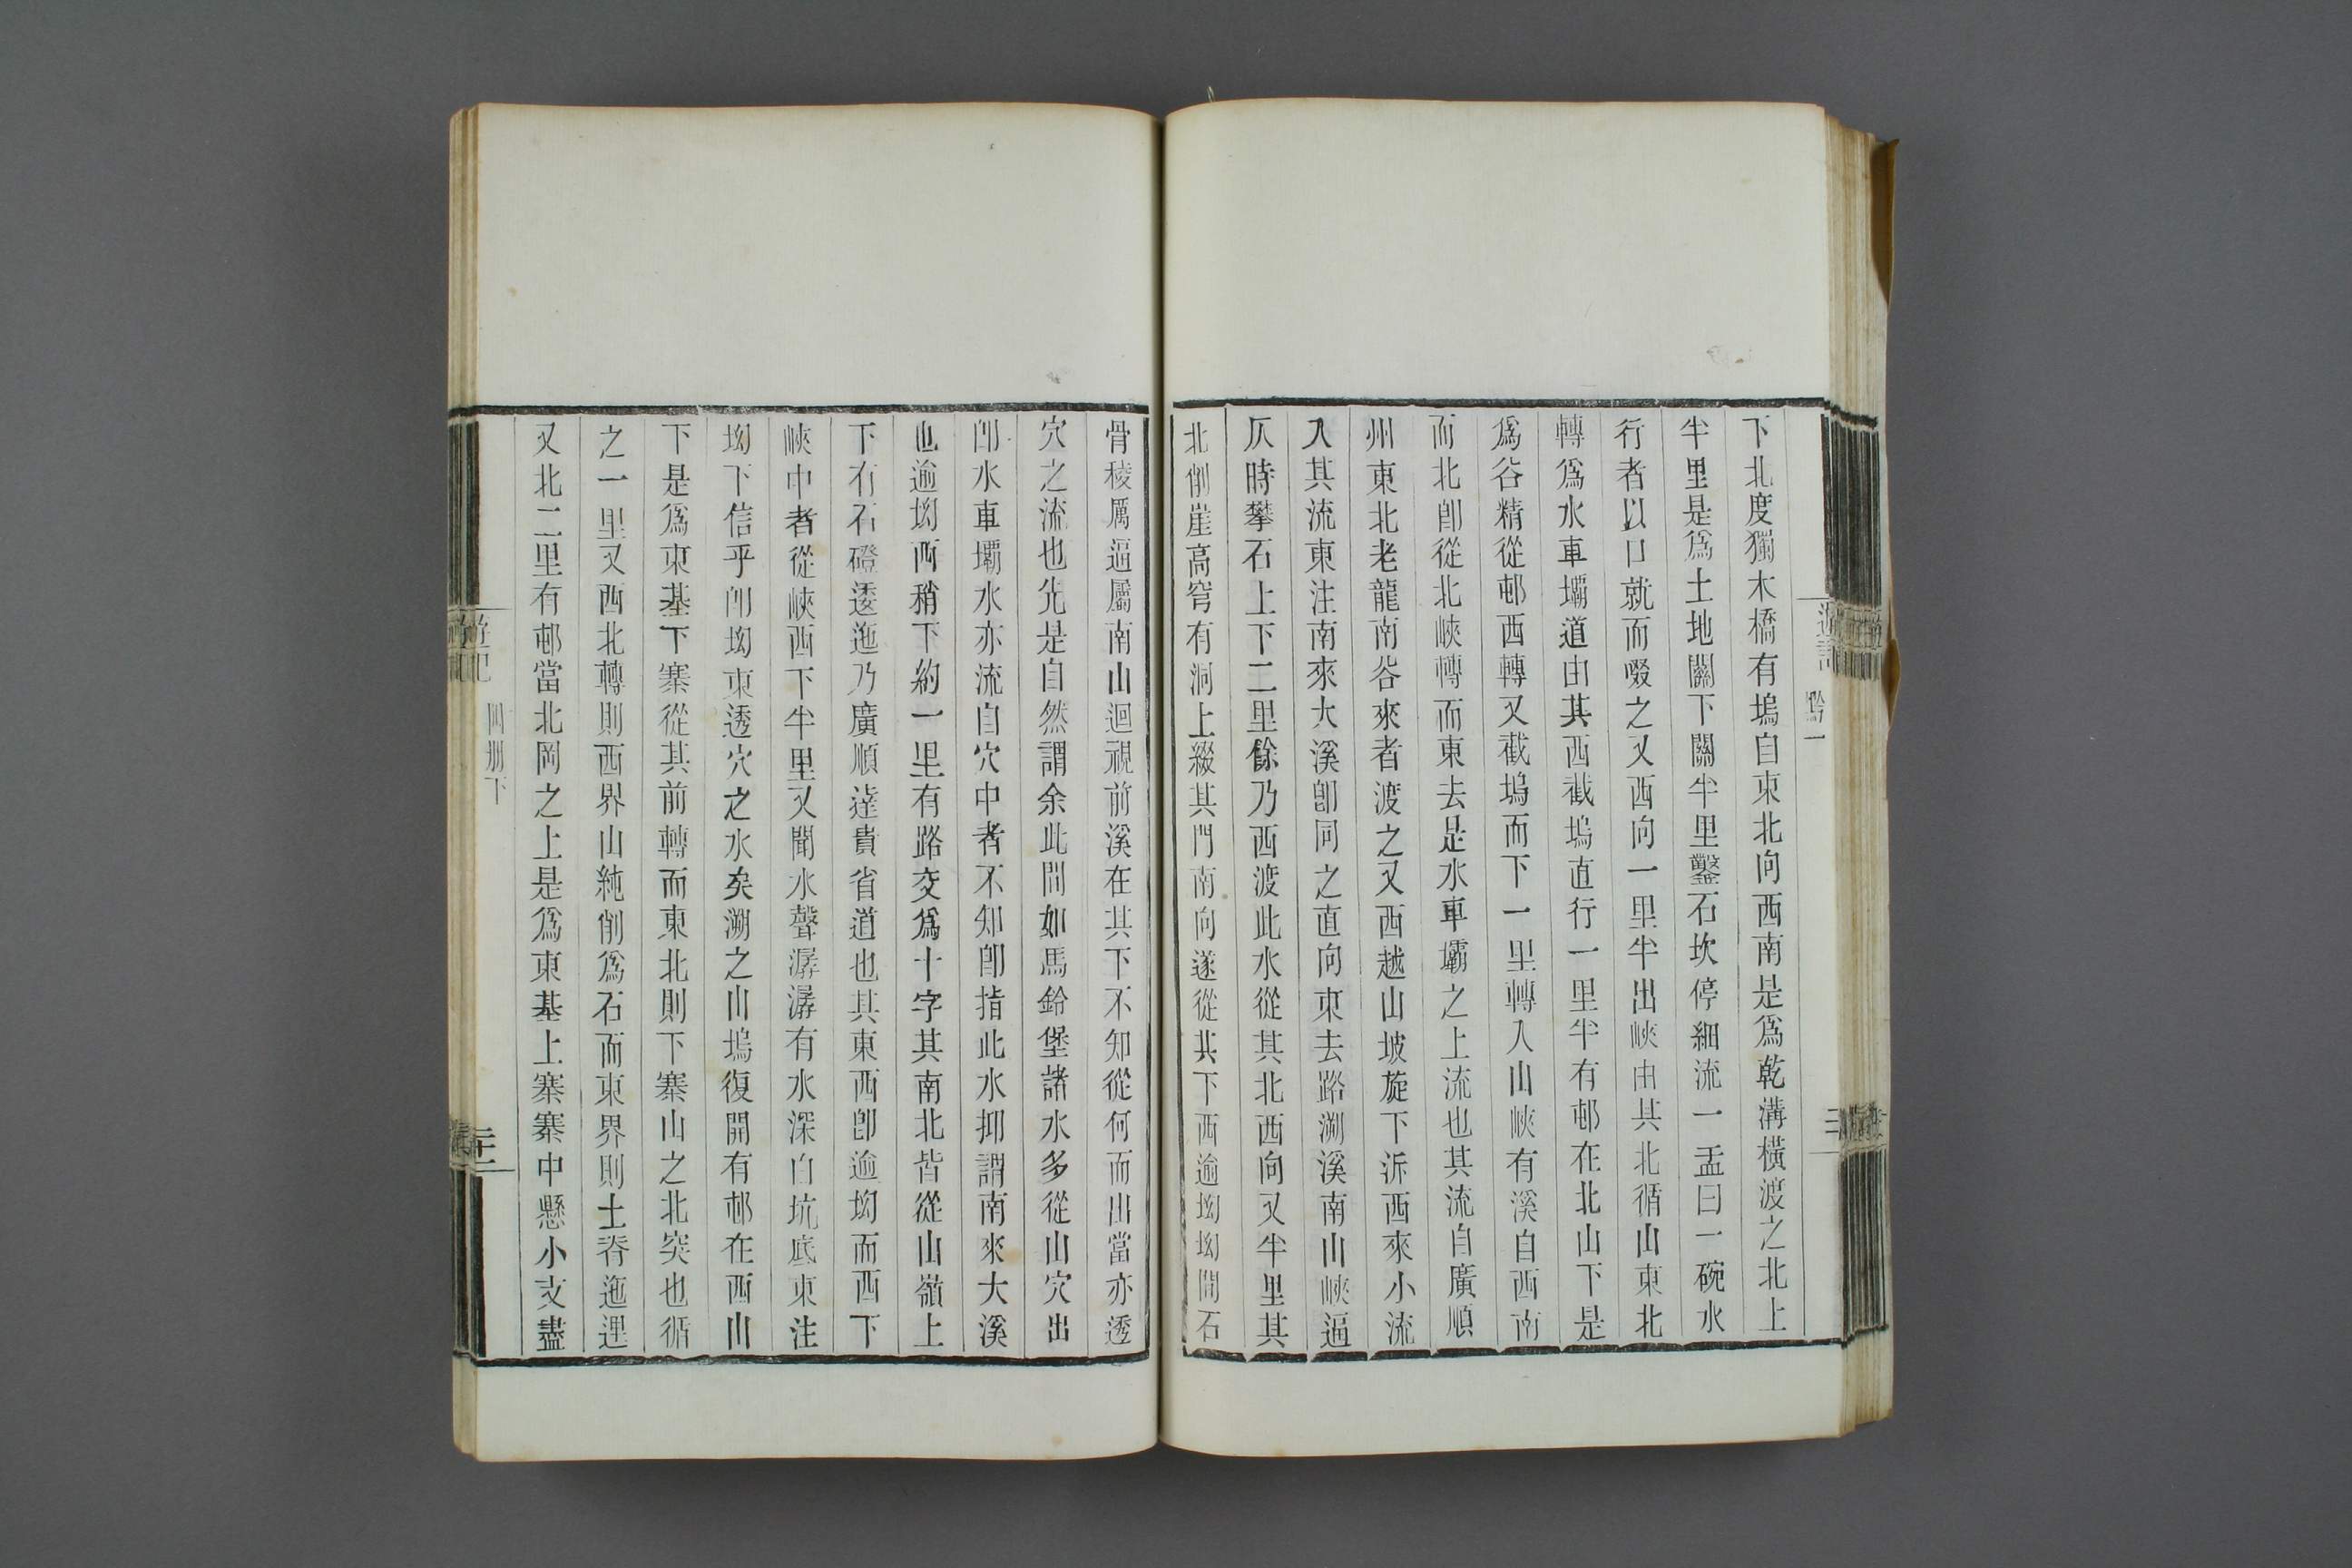 下北度獨木橋有塢自東北向西南是爲乾溝橫渡之北上
半里是爲土地關下關半里鑿石坎停細流一盂曰一碗水
行者以口就而啜之又西向一里半出峽由其北循山東北
轉爲水車壩道由其西截塢直行一里半有邨在北山下是
爲谷精從邨西轉又截塢而下一里轉入山峽有溪自西南
而北卽從北峽轉而東去是水車壩之上流也其流自廣順
州東北老龍南谷來者渡之又西越山坡旋下泝西來小流
入其流東注南來大溪卽同之直向東去路溯溪南山峽逼
仄時攀石上下二里餘乃西渡此水從其北西向又半里其
北削崖高穹有洞上綴其門南向遂從其下西逾坳坳間石
骨稜厲逼屬南山迴視前溪在其下不知從何而出當亦透
穴之流也先是自然謂余此間如馬鈴堡諸水多從山穴出
卽水車壩水亦流自穴中者不知卽指此水抑謂南來大溪
也逾坳西稍下約一里有路交爲十字其南北皆從山嶺上
下有石磴逶迤乃廣順達貴省道也其東西卽逾坳而西下
峽中者從峽西下半里又聞水聲潺潺有水深自坑底東注
坳下信乎卽坳東透穴之水矣溯之山塢復開有邨在西山
下是爲東基下寨從其前轉而東北則下寨山之北突也循
之一里又西北轉則西界山純削爲石而東界則土脊迤邐
又北二里有邨當北岡之上是爲東基上寨寨中懸小支盡
遊記
黔一
三
遊記
四册下
二十一